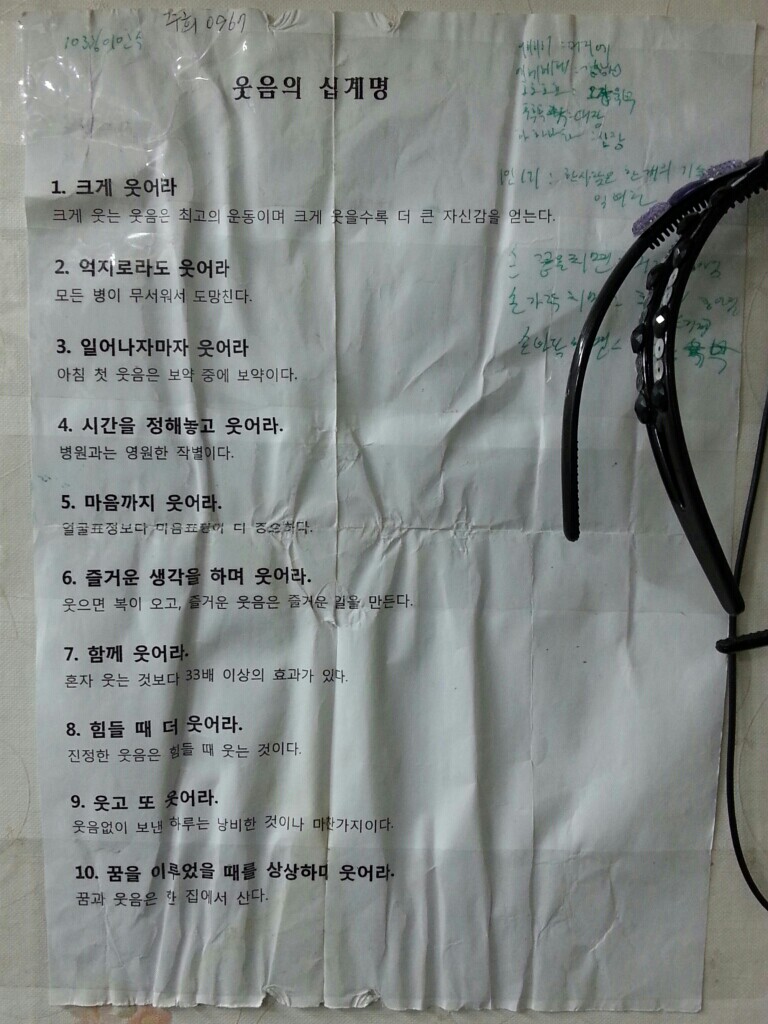 주희 0967
웃음의 십계명
1. 크게 웃어라
크게 웃는 웃음은 최고의 운동이며 크게 웃을수록 더 큰 자신감을 얻는다.
2. 억지로라도 웃어라
모든 병이 무서워서 도망친다.
3. 일어나자마자 웃어라
아침 첫 웃음은 보약 중에 보약이다.
4. 시간을 정해놓고 웃어라.
병원과는 영원한 작별이다.
5. 마음까지 웃어라.
얼굴표정보다 마음표정이 더 중요하다.
6. 즐거운 생각을 하며 웃어라.
웃으면 복이 오고, 즐거운 웃음은 즐거운 길을 만든다.
7. 함께 웃어라.
혼자 웃는 것보다 33배 이상의 효과가 있다.
8. 힘들 때 더 웃어라.
진정한 웃음은 힘들 때 웃는 것이다.
9. 웃고 또 웃어라.
웃음없이 보낸 하루는 낭비한 것이나 마찬가지이다.
10. 꿈을 이루었을 때를 상상하며 웃어라.
꿈과 웃음은 한 집에서 산다.